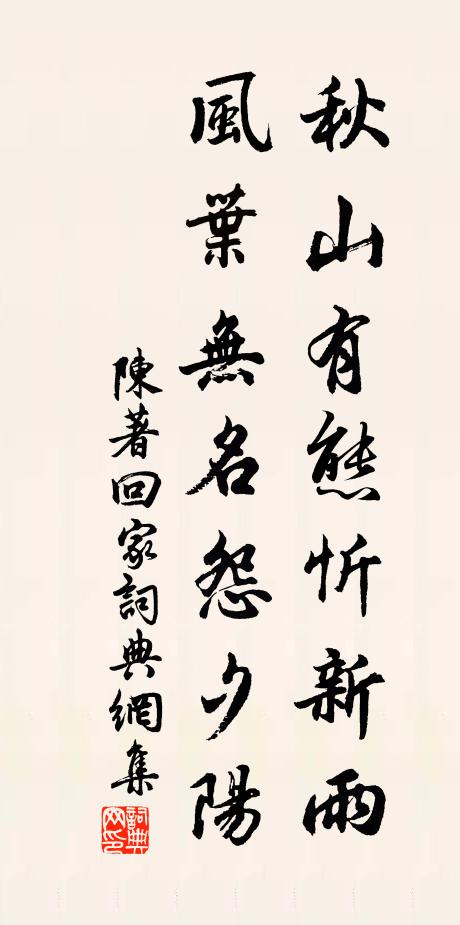 秋山有態忻新雨
風葉無名怨夕陽
陳著回家詞典網集
詞典網印